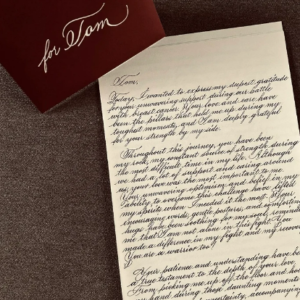 for Tam
Tam,
Today, I wanted to express my deepest gratitude
for your unwavering support during our battle
with breast cancer. Your love and care have
been the pillars that held me up during my
toughest moments, and I am deeply grateful
for your strength by my side.
Throughout this journey, you have been
my rock, my constant source of strength during
the most difficult time in my life. Although
we had a lot of support and love around
us, your love was the most important to me.
Your unwavering optimism and belief in my
ability to overcome this challenge have lifted
my spirits when I needed it the most. Your
encouraging words, gentle gestures, and comforting
hugs have been soothing for my soul, reminding
me that I am not alone in this fight. You
made a difference in my fight and my recovery.
You are a warrior too!
Your patience and understanding have been
a true testament to the depth of your love.
From picking me up off the floor and
hand during those daunting moments